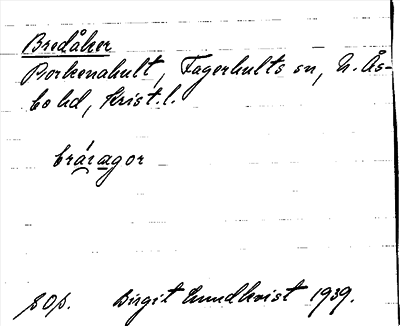 Bredåker
Porkenahult, Fagerhults sn, N. Ås-
bo hd, Krist. l.
bráragor
sop. Birgit Lundkvist 1939.